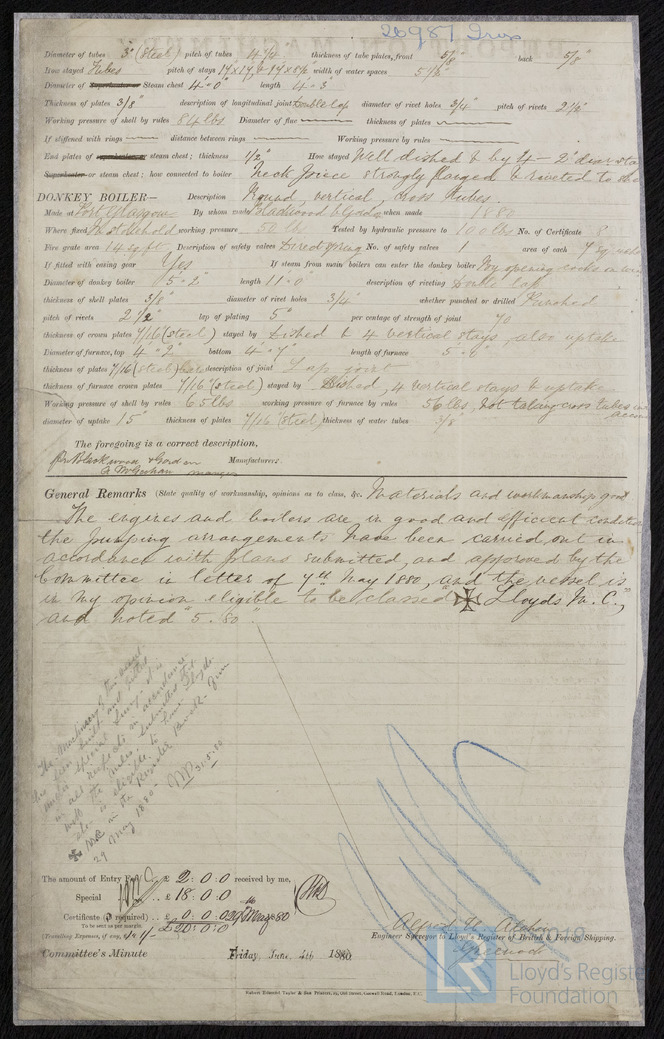 26987 Iron
Diameter of tubes 3" (Steel) pitch of tubes 4 1/4 thickness of tube plates, front 5/8" back 5/8"
How stayed Tubes pitch of stays width of water spaces
Diameter of Superheater or Steam chest 4'-0" length 4'-3"
Thickness of plates 3/8" description of longitudinal joint Double lap diameter of rivet holes 3/4" pitch of rivets 2 1/2"
Working pressure of shell by rules 84 lbs Diameter of flue thickness of plates
If stiffened with rings distance between rings Working pressure by rules
End plates of superheater or steam chest; thickness 1/2" How stayed Well dished & by 4 - 2" diar sta
Superheater or steam chest; how connected to boiler Neck piece strongly flanged & riveted to she
DONKEY BOILER— Description Round, vertical, cross tubes.
Made at Port Glasgow By whom made Blackwood & Gordon when made 1880
Where fixed In Stokehold working pressure 50 lbs Tested by hydraulic pressure to 100 lbs No. of Certificate
Fire grate area 14 sq ft Description of safety valves Direct spring No. of safety valves 1 area of each
If fitted with easing gear Yes If steam from main boilers can enter the donkey boiler By opening cocks on
Diameter of donkey boiler 5'-2" length 11'-0" description of riveting Double lap
thickness of shell plates 3/8" diameter of rivet holes 3/4 whether punched or drilled Punched
pitch of rivets 2 1/2" lap of plating 5" per centage of strength of joint 70
thickness of crown plates 7/16 (steel) stayed by Dished & 4 vertical stays also uptake
Diameter of furnace, top 4'-2" bottom 4'-7" length of furnace 5'-0"
thickness of plates 7/16 (steel) description of joint Lap joint
thickness of furnace crown plates 7/16 (steel) stayed by Dished, 4 vertical stays & uptake
Working pressure of shell by rules 65 lbs working pressure of furnace by rules 56 lbs, not taking cross tubes in
accou
diameter of uptake 15" thickness of plates 7/16 (steel) thickness of water tubes 3/8
The foregoing is a correct description,
Pr Blackwood & Gordon Manufacturer.
manager
General Remarks (State quality of workmanship, opinions as to class, &c. Materials and workmanship good
The engines and boilers are in good and efficient condition
the pumping arrangements have been carried out in
accordance with plans submitted, and approved by the
Committee in letter of 7th May 1880, and the vessel is
in my opinion eligible to be classed "✠ Lloyds M.C.,
and noted "5.80".
The machinery of this vessel
has been built and fitted
under special survey
in all respects in accordance
with the rules.
also is eligible to have Lloyds
✠ MC in the Register Book
29 May 1880
31.5.80
The amount of Entry Fee .. £ 2 : 0 : 0 received by me,
Special .. £ 18 : 0 : 0
Certificate (if required) .. £ 0 : 0 : 0 29th May 1880
To be sent as per margin.
£20 : 0 : 0
(Travelling Expenses, if any, £
Engineer Surveyor to Lloyd's Register of British & Foreign Shipping.
Greenock
Committee's Minute Friday, June 4th 1880
Robert Edmund Taylor & Son Printers, 19, Old Street, Goswell Road, London, E.C.
2018
LR
Lloyd's Registe
Foundation